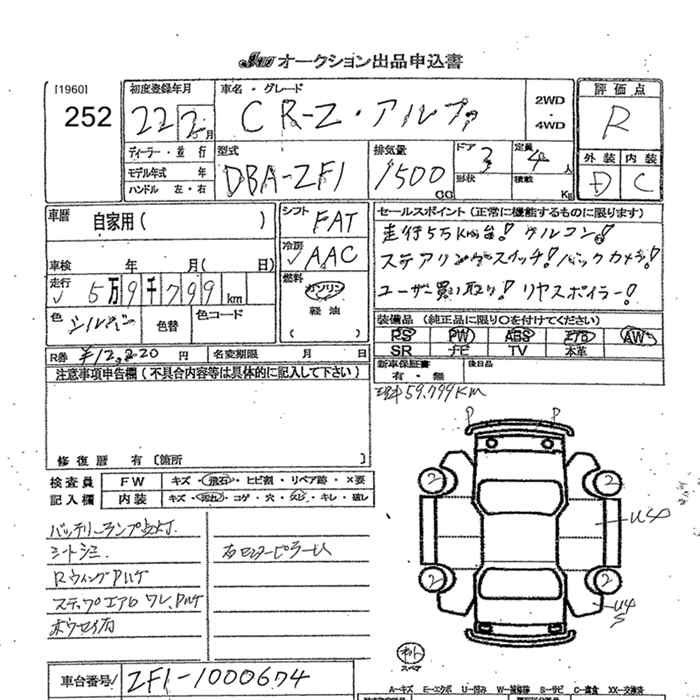 オークション出品申込書
[1960]
252
初度登録年月
22 2月
車名・グレード
CR-Z・アルファ
2WD
・
4WD
評価点
R
外装 内装
D C
ディーラー・並行
モデル年式 年
ハンドル 左・右
型式
DBA-ZF1
排気量
1500
CC
ドア 3
形状
定員 4 人
積載 Kg
車歴 自家用( )
車検 年 月( 日)
走行 5万9千799km
色 シルバー 色替 色コード
シフト FAT
冷房 AAC
燃料
ガソリン
・
軽油
( )
セールスポイント(正常に機能するものに限ります)
走行5万Km台! クルコン!
ステアリングスイッチ! バックカメラ!
ユーザー買い取り! リヤスポイラー!
装備品(純正品に限り○を付けてください)
PS PW ABS エアB AW
SR ナビ TV 本革
新車保証書
有・無
後日品
R券 ¥12,220 円 名変期限 月 日
注意事項申告欄(不具合内容等は具体的に記入して下さい)
59,799KM
修復歴 有 〔箇所 〕
検査員
記入欄
FW キズ・飛石・ヒビ割・リペア跡・×要
内装 キズ・汚れ・コゲ・穴・スレ・キレ・破レ
バッテリーランプ点灯.
シートシミ.
P P
2 2
U4
2 2
U4
S
スペア
車台番号 ZF1-1000674
A=キズ E=エクボ U=凹み W=補修跡 S=サビ C=腐食 XX=交換済